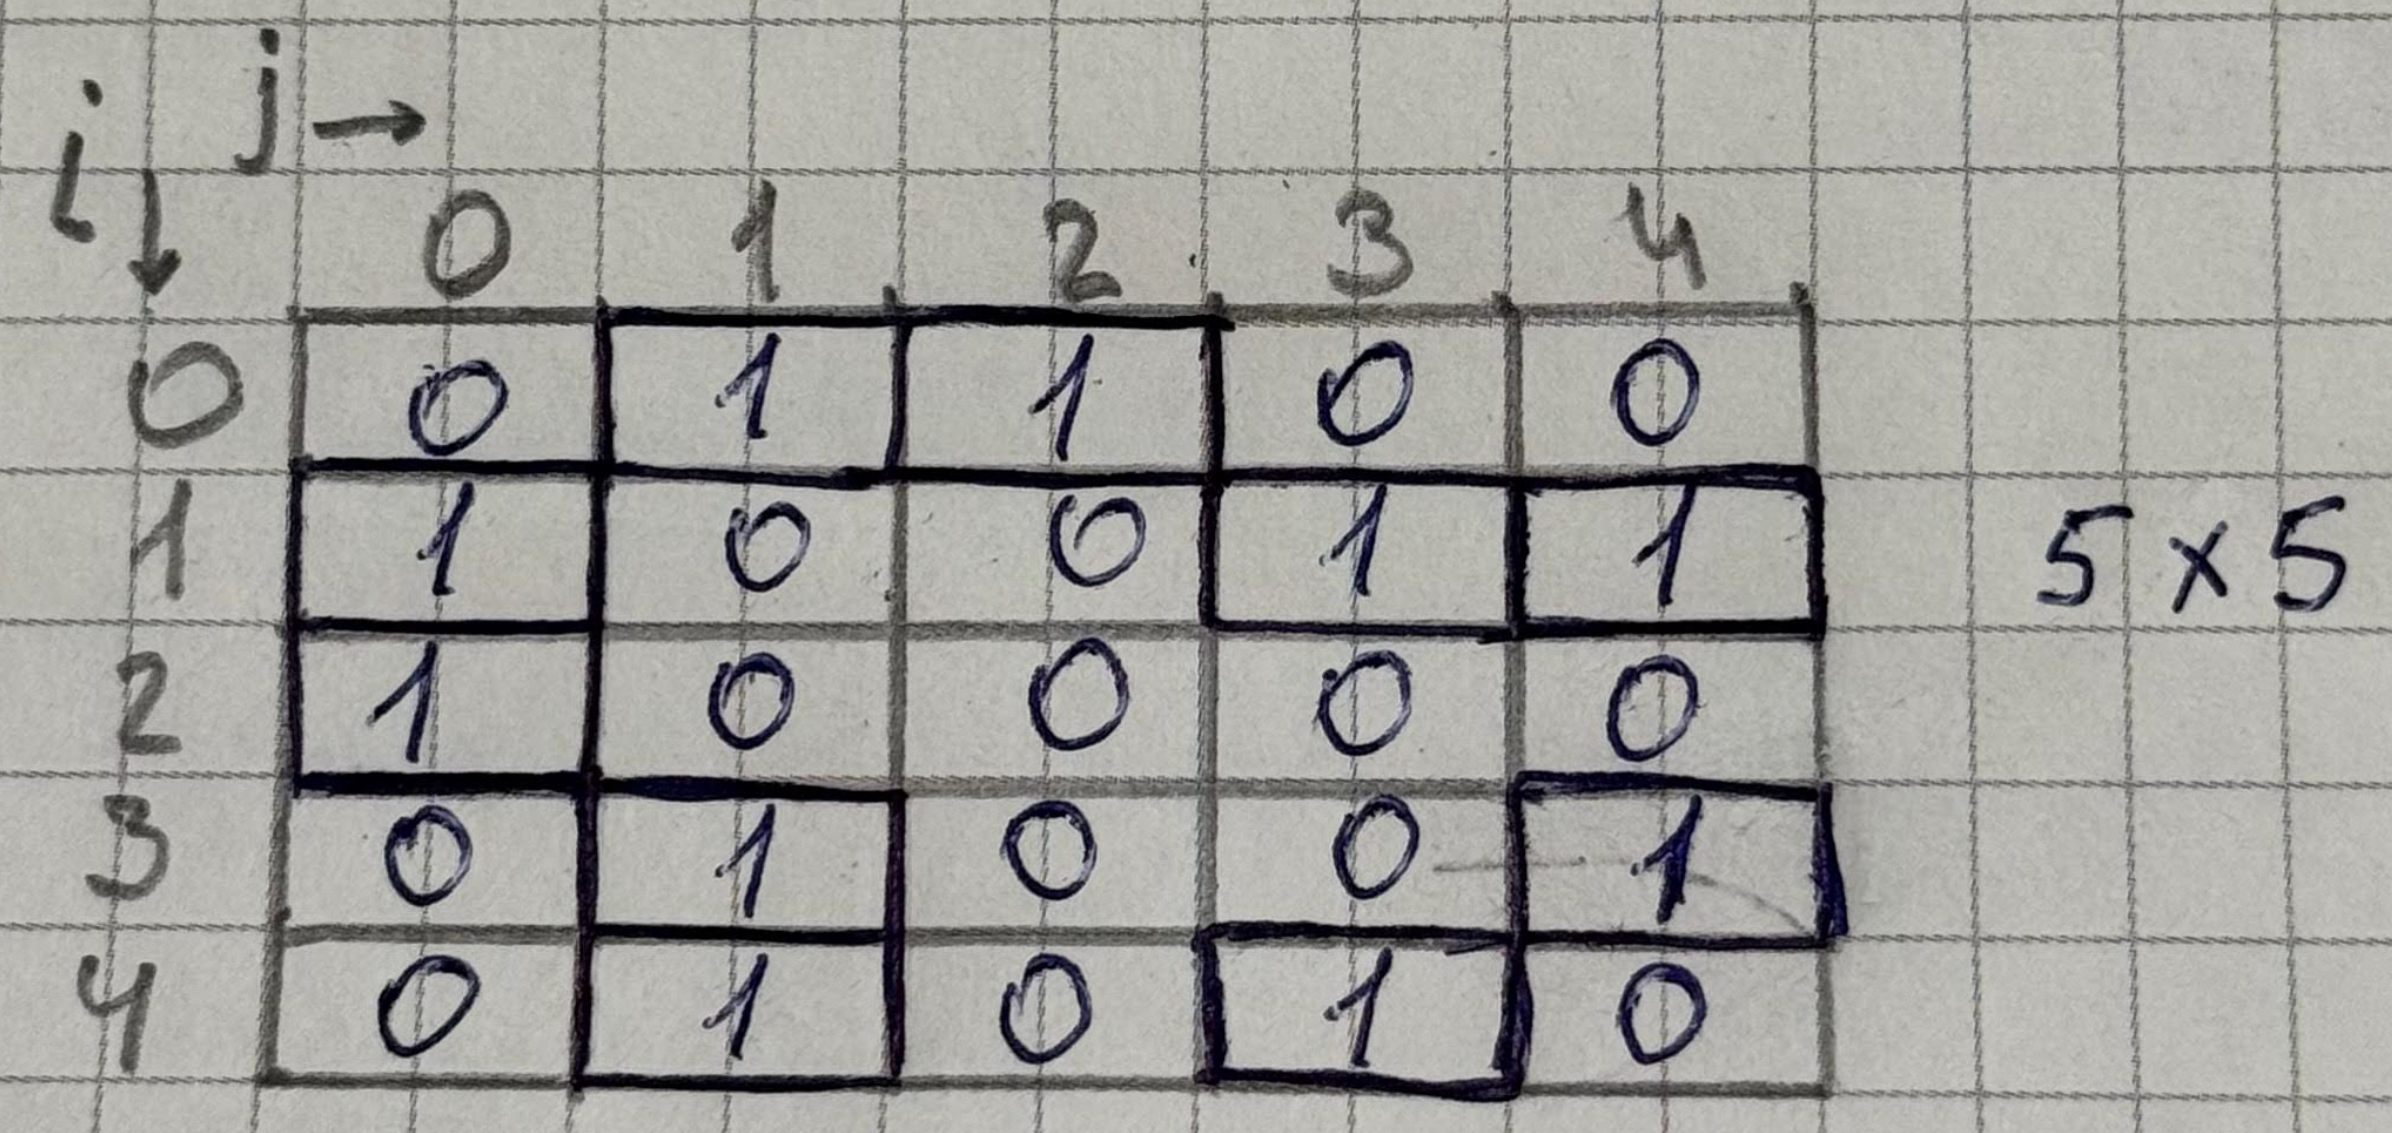 j →
i ↓
0 1 2 3 4
0 0 1 1 0 0
1 1 0 0 1 1 5 x 5
2 1 0 0 0 0
3 0 1 0 0 1
4 0 1 0 1 0